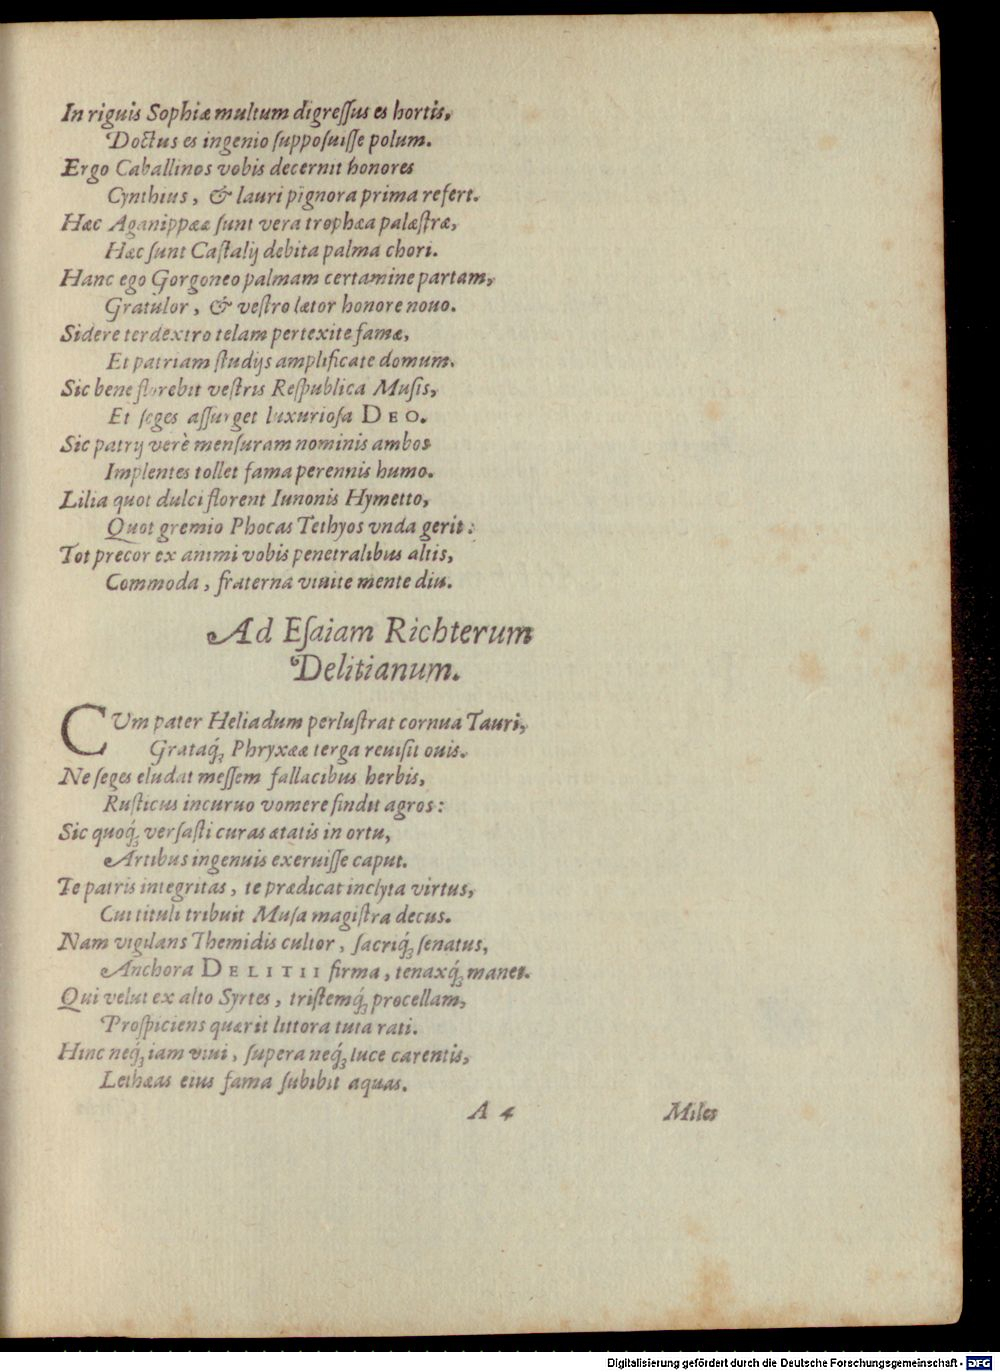 In riguis Sophiæ multum digreſſus es hortis,
Doctus es ingenio ſuppoſuiſſe polum.
Ergo Caballinos vobis decernit honores
Cynthius, & lauri pignora prima refert.
Hæc Aganippææ ſunt vera trophæa palæſtræ,
Hæc ſunt Caſtalij debita palma chori.
Hanc ego Gorgoneo palmam certamine partam,
Gratulor, & veſtro lætor honore nouo.
Sidere ter dextro telam pertexite famæ,
Et patriam ſtudijs amplificate domum.
Sic bene florebit veſtris Reſpublica Muſis,
Et ſeges aſſurget luxurioſa DEO.
Sic patrij verè menſuram nominis ambos
Implentes tollet fama perennis humo.
Lilia quot dulci florent Iunonis Hymetto,
Quot gremio Phocas Tethyos vnda gerit:
Tot precor ex animi vobis penetralibus altis,
Commoda, fraterna viuite mente diu.
Ad Eſaiam Richterum
Delitianum.
CUm pater Heliadum perluſtrat cornua Tauri,
Grataq́ꝫ Phryxææ terga reuiſit ouis.
Ne ſeges eludat meſſem fallacibus herbis,
Ruſticus incuruo vomere findit agros:
Sic quoq́ꝫ verſaſti curas ætatis in ortu,
Artibus ingenuis exeruiſſe caput.
Te patris integritas, te prædicat inclyta virtus,
Cui tituli tribuit Muſa magiſtra decus.
Nam vigilans Themidis cultor, ſacriq́ꝫ ſenatus,
Anchora DELITII firma, tenaxq́ꝫ manet.
Qui velut ex alto Syrtes, triſtemq́ꝫ procellam,
Proſpiciens quærit littora tuta rati.
Hinc neq́ꝫ iam viui, ſupera neq́ꝫ luce carentis,
Lethæas eius fama ſubibit aquas.
A 4 Miles
Digitalisierung gefördert durch die Deutsche Forschungsgemeinschaft - DFG